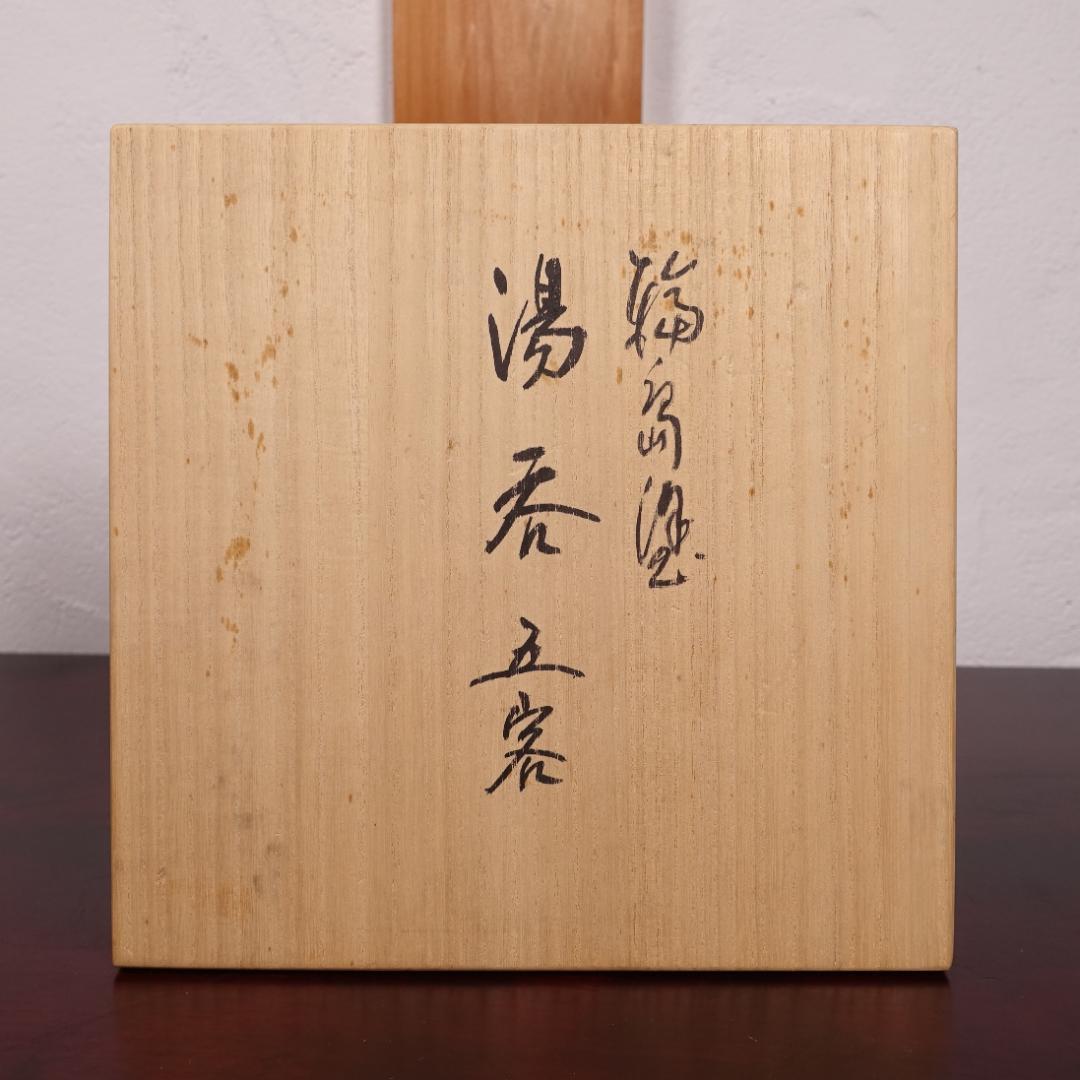 輪島塗
湯呑五客